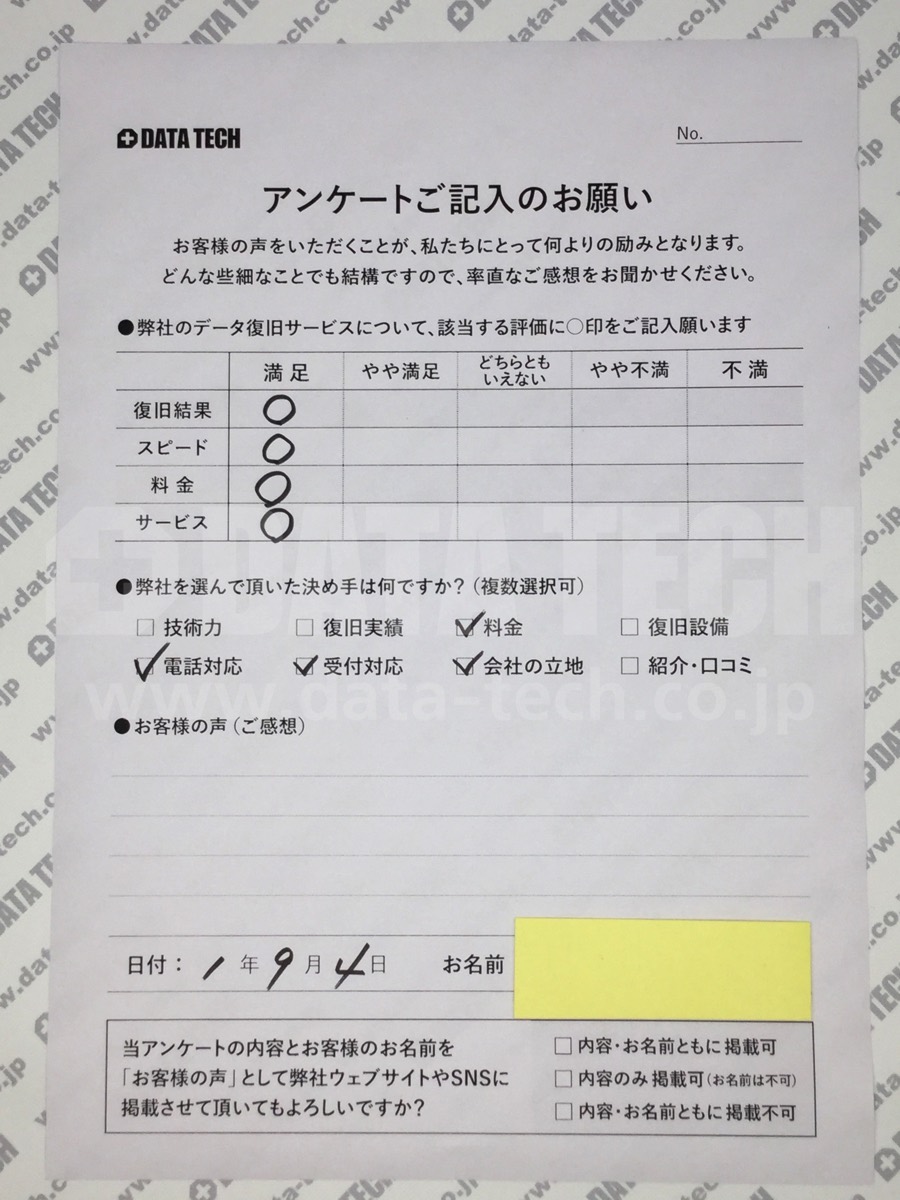 DATA TECH
No.
アンケートご記入のお願い
お客様の声をいただくことが、私たちにとって何よりの励みとなります。
どんな些細なことでも結構ですので、率直なご感想をお聞かせください。
●弊社のデータ復旧サービスについて、該当する評価に〇印をご記入願います
満足 やや満足 どちらとも やや不満 不満
いえない
復旧結果 〇
スピード 〇
料金 〇
サービス 〇
DATA TECH
●弊社を選んで頂いた決め手は何ですか?(複数選択可)
□ 技術力 □ 復旧実績 ☑ 料金 □ 復旧設備
☑ 電話対応 ☑ 受付対応 ☑ 会社の立地 □ 紹介・口コミ
www.data-tech.co.jp
●お客様の声(ご感想)
日付: 1 年 9 月 4 日 お名前
当アンケートの内容とお客様のお名前を
「お客様の声」として弊社ウェブサイトやSNSに
掲載させて頂いてもよろしいですか?
□ 内容・お名前ともに 掲載可
□ 内容のみ 掲載可(お名前は不可)
□ 内容・お名前ともに 掲載不可